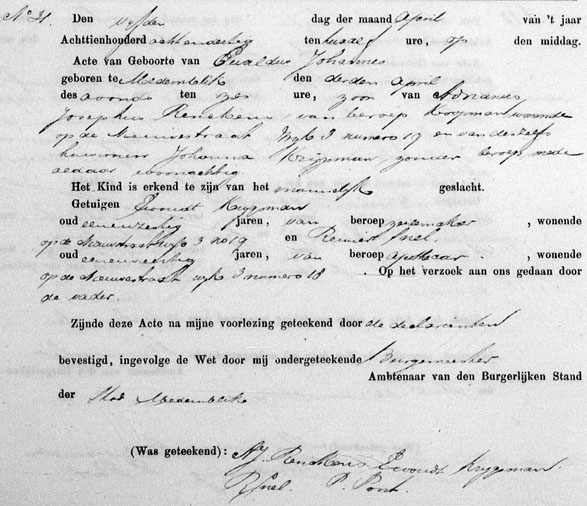 No 31. Den vyfden dag der maand April van 't jaar
Achttienhonderd achtendertig ten twaalf ure, op den middag.
Acte van Geboorte van Ewaldus Johannes
geboren te Medemblik den derden April
des avonds ten zes ure, zoon van Adrianus
Josephus Renckens, van beroep Koopman, wonende
op de Nieuwstraat Wyk 3 numero 19 en van deszelfs
huisvrouw Johanna Kruppman, zonder beroep mede
aldaar woonachtig
Het Kind is erkend te zijn van het mannelyk geslacht.
Getuigen Ewoudt Kruppman
oud eenenzestig jaren, van beroep , wonende
op de Nieuwstraat wyk 3 no 19 en Reinier Snel.
oud jaren, van beroep apothecar , wonende
op de Nieuwestraat wyk 3 numero 18 . Op het verzoek aan ons gedaan door
de vader.
Zijnde deze Acte na mijne voorlezing geteekend door de declaranten
bevestigd, ingevolge de Wet door mij ondergeteekende Burgemeester
Ambtenaar van den Burgerlijken Stand
der Stad Medemblik
(Was geteekend): A.J. Renckens Ewoudt Kruppman.
R Snel. P. Pont.